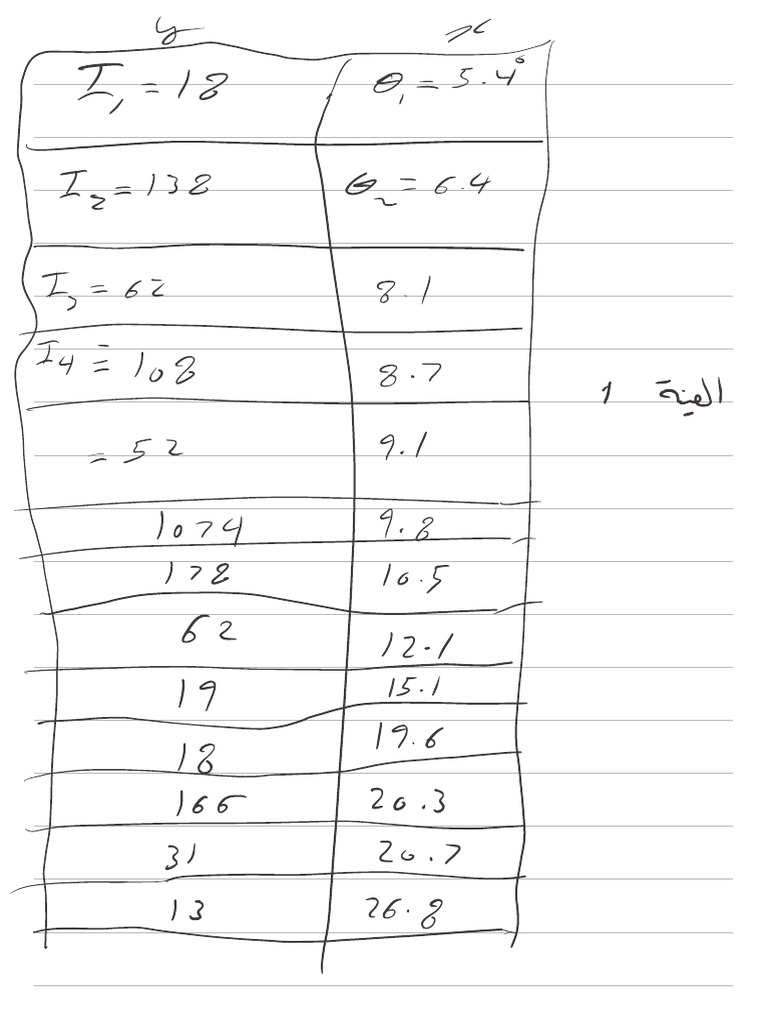 y x
I₁ = 18 θ₁ = 5.4°
I₂ = 138 θ₂ = 6.4
I₃ = 62 8.1
I₄ = 108 8.7
العينة 1
= 52 9.1
1074 9.8
178 10.5
62 12.1
19 15.1
18 19.6
166 20.3
31 20.7
13 26.8